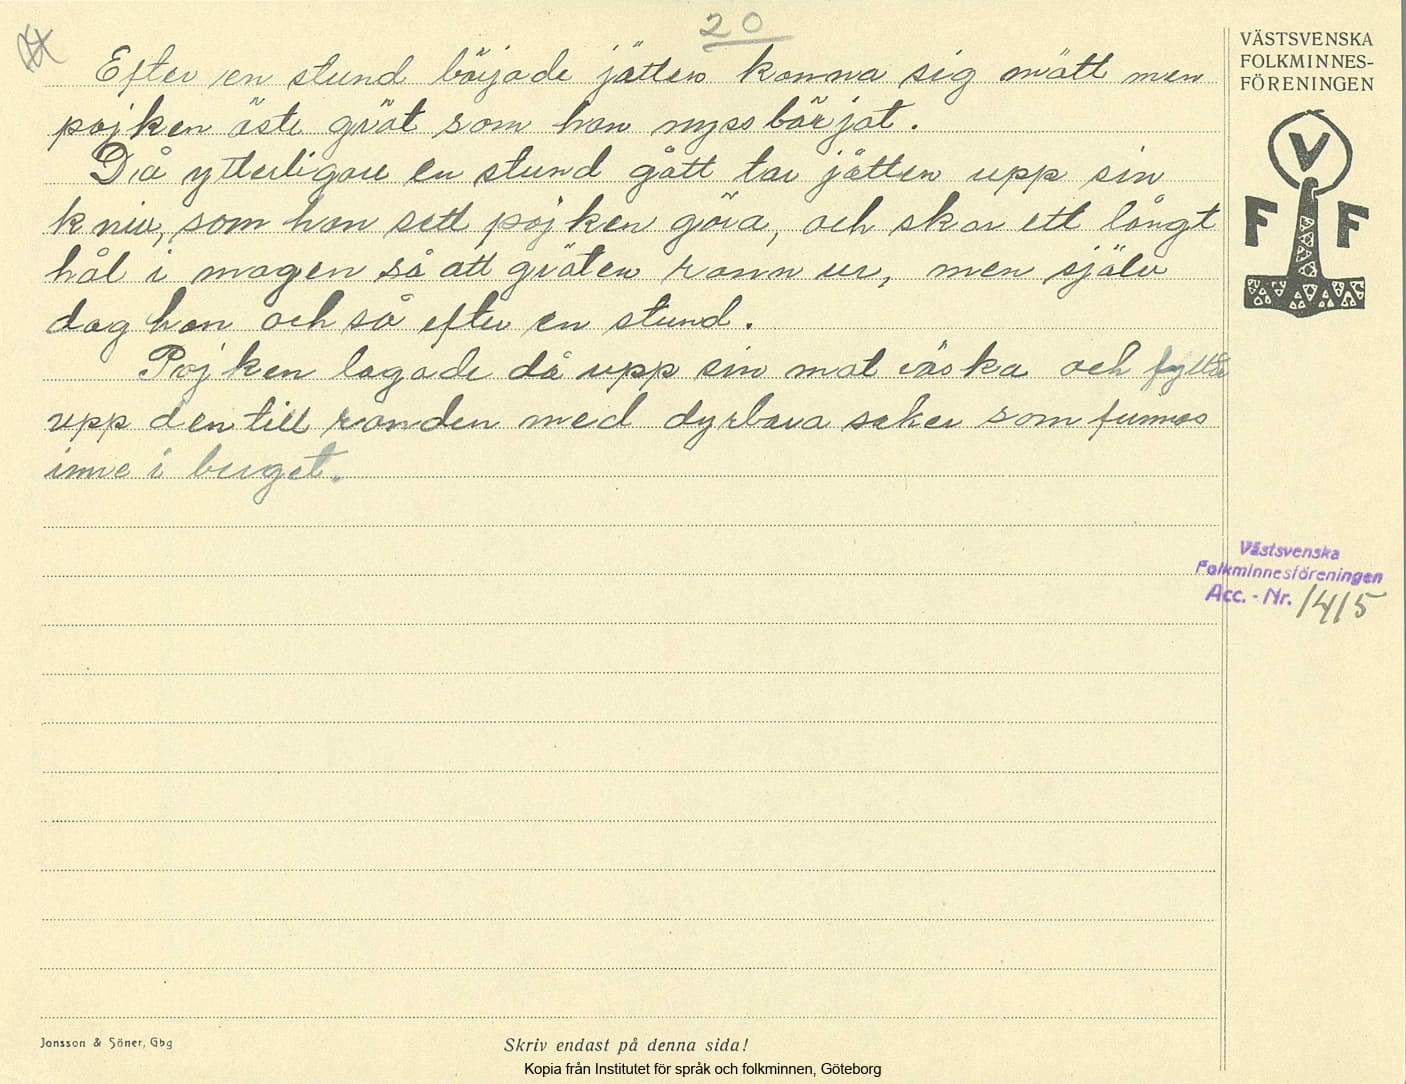 20
VÄSTSVENSKA
FOLKMINNES-
FÖRENINGEN
Efter en stund började jätten kanna sig mätt men
pojken åste gröt som han nyss börjat.
Då ytterligare en stund gått tar jätten upp sin
kniv, som han sett pojken göra, och skar ett långt
hål i magen så att gröten rann ur, men själv
dog han och så efter en stund.
Pojken lagade då upp sin mat väska och fyllde
upp den till randen med dyrbara saker som funnos
inne i buget.
V
F F
Västsvenska
Folkminnesföreningen
Acc. - Nr. 1415
Jonsson & Söner, Gbg
Skriv endast på denna sida!
Kopia från Institutet för språk och folkminnen, Göteborg